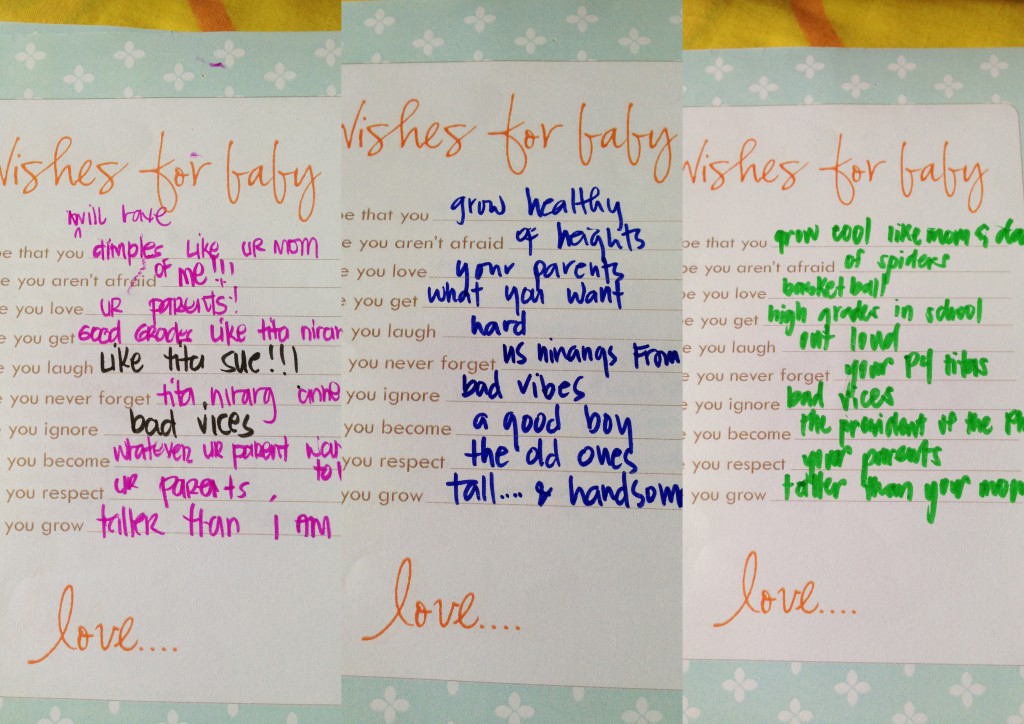 Wishes for baby
will have
pe that you dimples like ur mom
e you aren't afraid of me!!!
e you love ur parents!
e you get Good Grades like tita
you laugh Like tita sue!!!
you never forget tita
you ignore bad vices
you become whatever ur parent
you respect ur parents,
you grow taller than I AM
love....
Wishes for baby
pe that you grow healthy
e you aren't afraid of heights
e you love your parents
e you get what you want
you laugh hard
you never forget us ninangs From
you ignore bad vibes
you become a good boy
you respect the old ones
you grow tall.... & handsom
love....
Wishes for baby
pe that you grow cool like mom & da
e you aren't afraid of spiders
e you love basketball
e you get high grades in school
e you laugh out loud
e you never forget your P4 titas
e you ignore bad vices
you become the president of the Ph
you respect your parents
you grow taller than your mom
love....